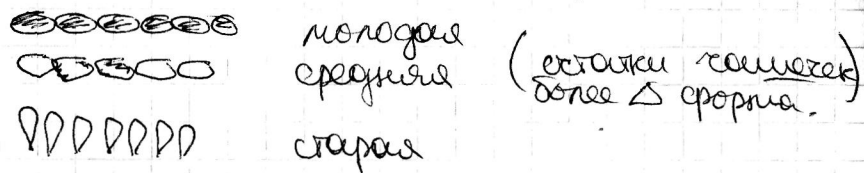 молодая
средняя (остатки чашечек)
более △ форма.
старая